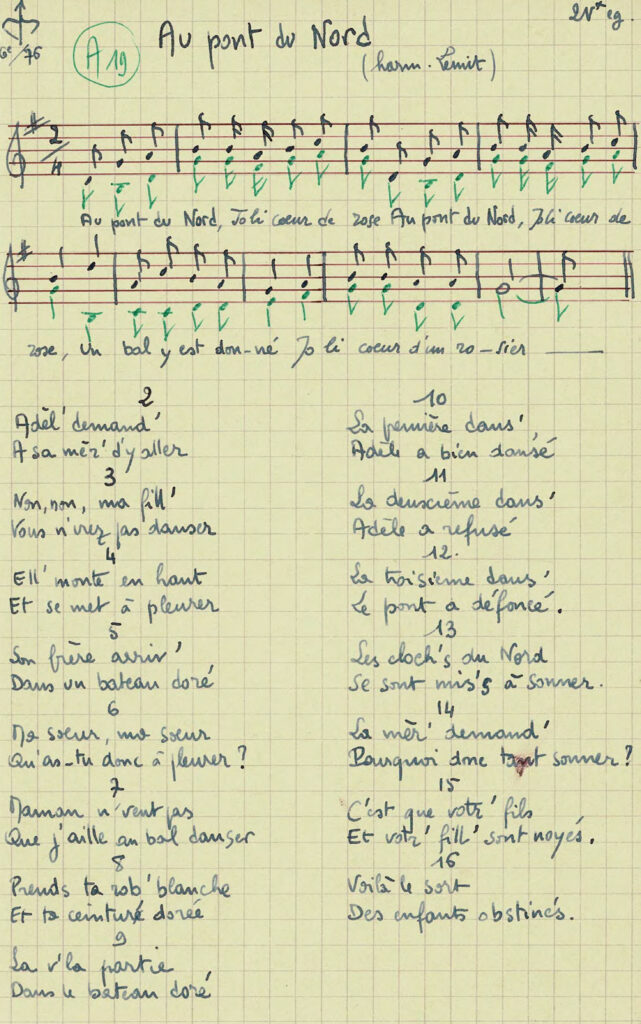 2V* eg.
6e/76
A19
Au pont du Nord
(harm. Lemit)
2
4
Au pont du Nord, Joli coeur de rose Au pont du Nord, Joli coeur de
rose, Un bal y est don-né Jo li coeur d'un ro-sier
2
Adèl' demand'
A sa mèr' d'y aller
3
Non, non, ma fill'
Vous n'irez pas danser
4
Ell' monte en haut
Et se met à pleurer
5
Son frère arriv'
Dans un bateau doré
6
Ma soeur, ma soeur
Qu'as-tu donc à pleurer ?
7
Maman n'veut pas
Que j'aille au bal danser
8
Prends ta rob' blanche
Et ta ceinture dorée
9
La v'la partie
Dans le bateau doré
10
La première dans'
Adèle a bien dansé
11
La deuxième dans'
Adèle a refusé
12.
La troisieme dans'
Le pont a défoncé.
13
Les cloch's du Nord
Se sont mis's à sonner.
14
La mèr' demand'
Pourquoi donc tant sonner ?
15
C'est que votr' fils
Et votr' fill' sont noyés.
16
Voilà le sort
Des enfants obstinés.